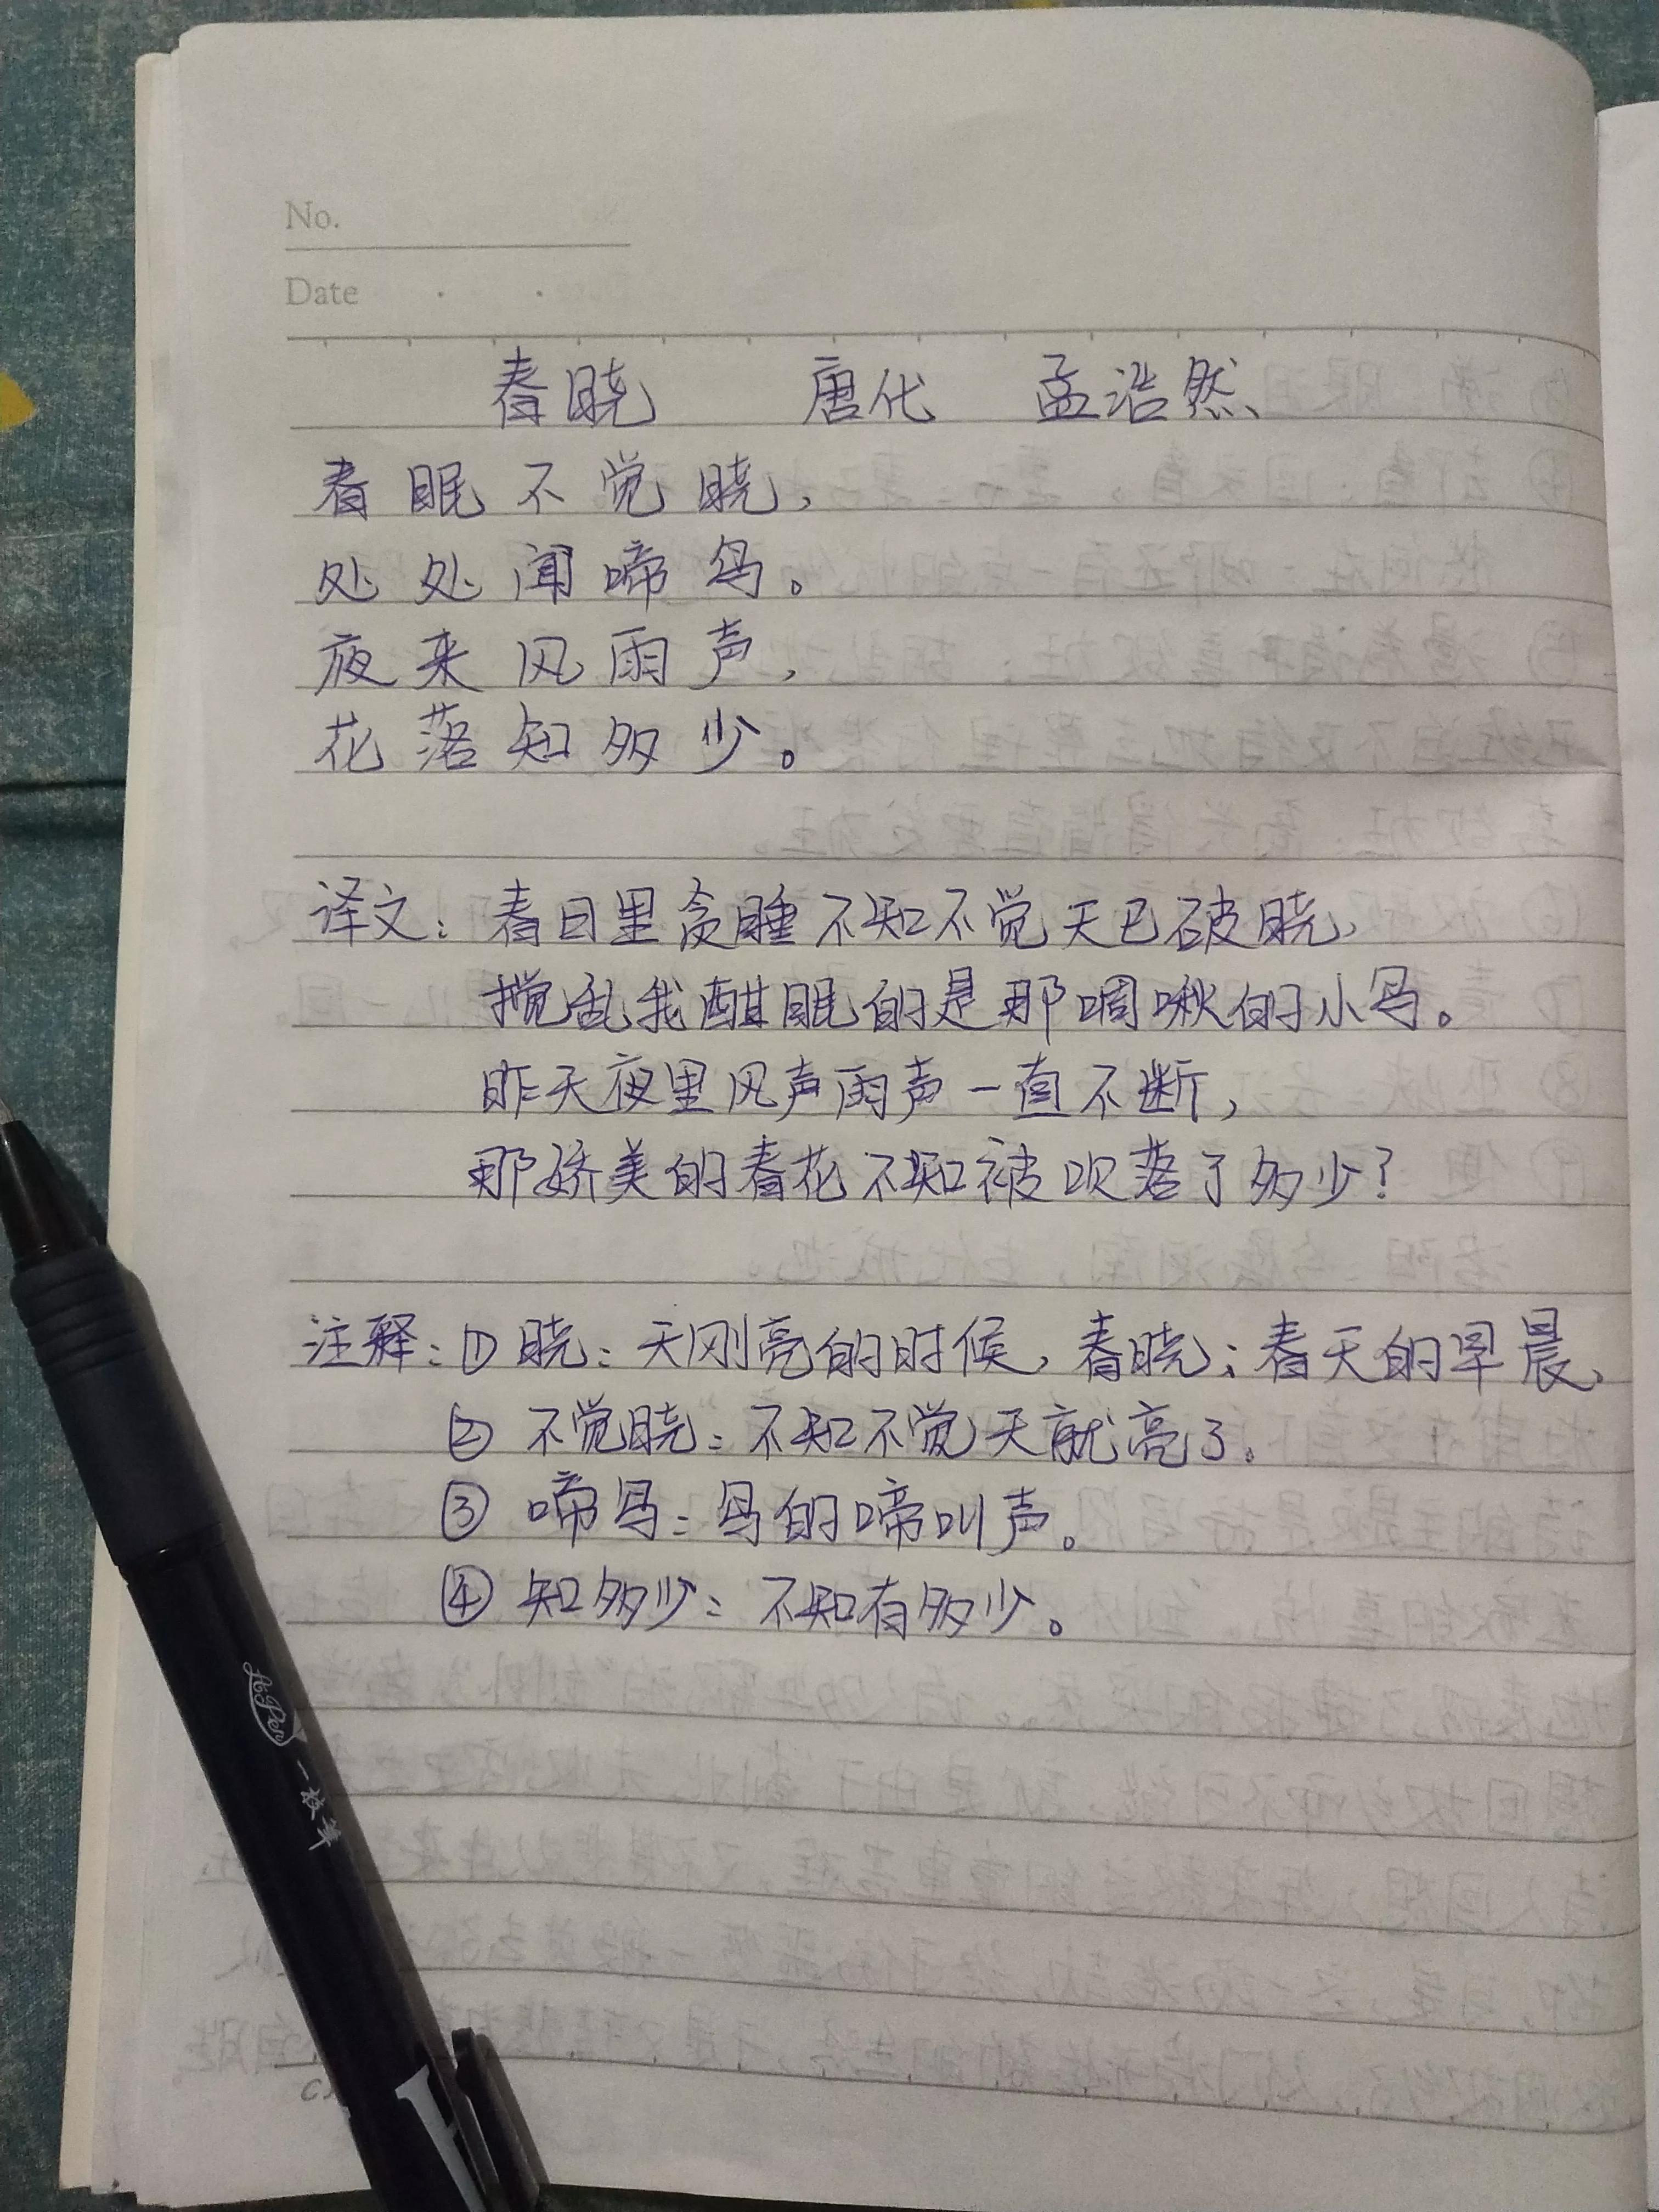 No.
Date
春晓 唐代 孟浩然
春眠不觉晓,
处处闻啼鸟。
夜来风雨声,
花落知多少。
译文: 春日里贪睡不知不觉天已破晓,
搅乱我酣眠的是那啁啾的小鸟。
昨天夜里风声雨声一直不断,
那娇美的春花不知被吹落了多少?
注释: ① 晓: 天刚亮的时候, 春晓: 春天的早晨、
② 不觉晓: 不知不觉天就亮了。
③ 啼鸟: 鸟的啼叫声。
④ 知多少: 不知有多少。
一枚笔